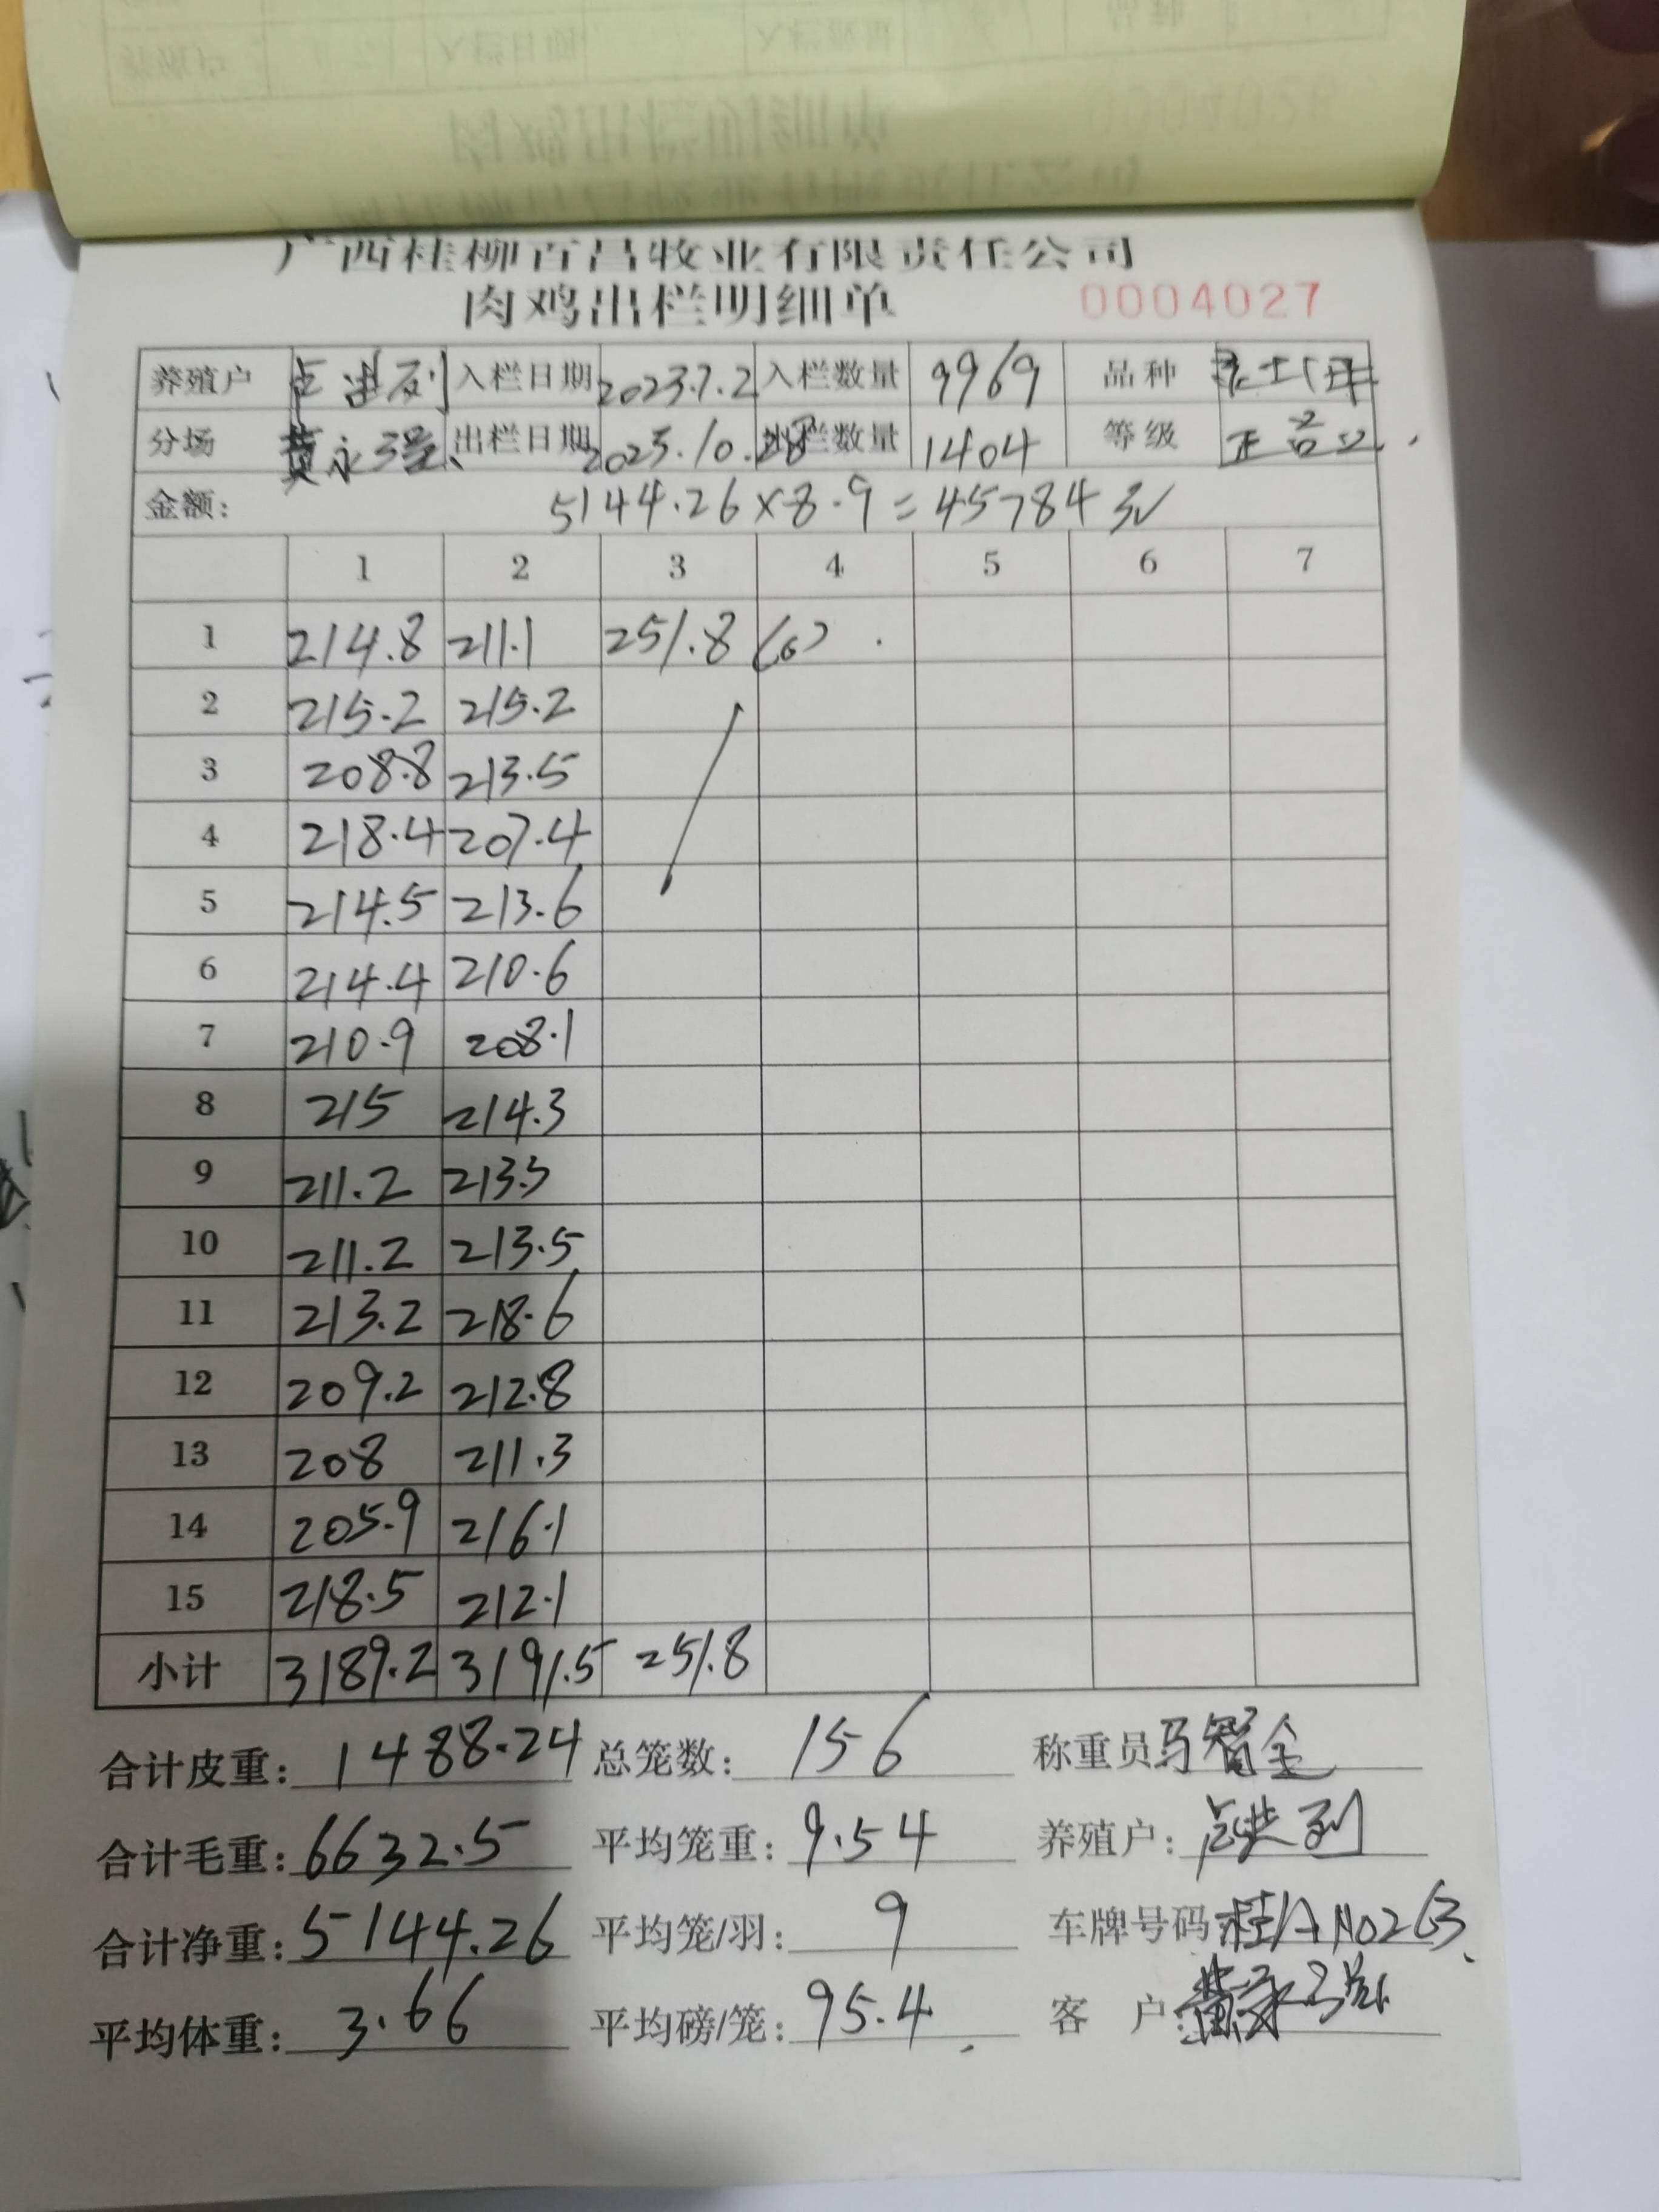 广西桂柳百昌牧业有限责任公司
肉鸡出栏明细单 0004027
养殖户 入栏日期 2023.7.2 入栏数量 9969 品种
分场 黄永强 出栏日期 2023.10.28 出栏数量 1404 等级
金额: 5144.26×8.9=45784元
1 2 3 4 5 6 7
1 214.8 211.1 251.8 (6)
2 215.2 215.2
3 208.8 213.5
4 218.4 207.4
5 214.5 213.6
6 214.4 210.6
7 210.9 208.1
8 215 214.3
9 211.2 213.3
10 211.2 213.5
11 213.2 218.6
12 209.2 212.8
13 208 211.3
14 205.9 216.1
15 218.5 212.1
小计 3189.2 3191.5 251.8
合计皮重: 1488.24 总笼数: 156 称重员 马智全
合计毛重: 6632.5 平均笼重: 9.54 养殖户:
合计净重: 5144.26 平均笼/羽: 9 车牌号码
平均体重: 3.66 平均磅/笼: 95.4 客户: 黄永强